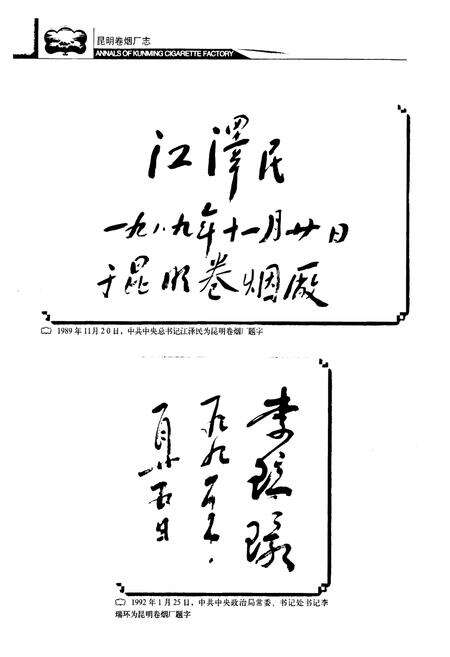 昆明卷烟厂志
ANNALS OF KUNMING CIGARETTE FACTORY
江澤民
一九八九年十一月廿日
于昆明卷烟厰
1989年11月20日，中共中央总书记江泽民为昆明卷烟厂题字
李瑞環
一九九二年
一月廿五日
1992年1月25日，中共中央政治局常委、书记处书记李
瑞环为昆明卷烟厂题字